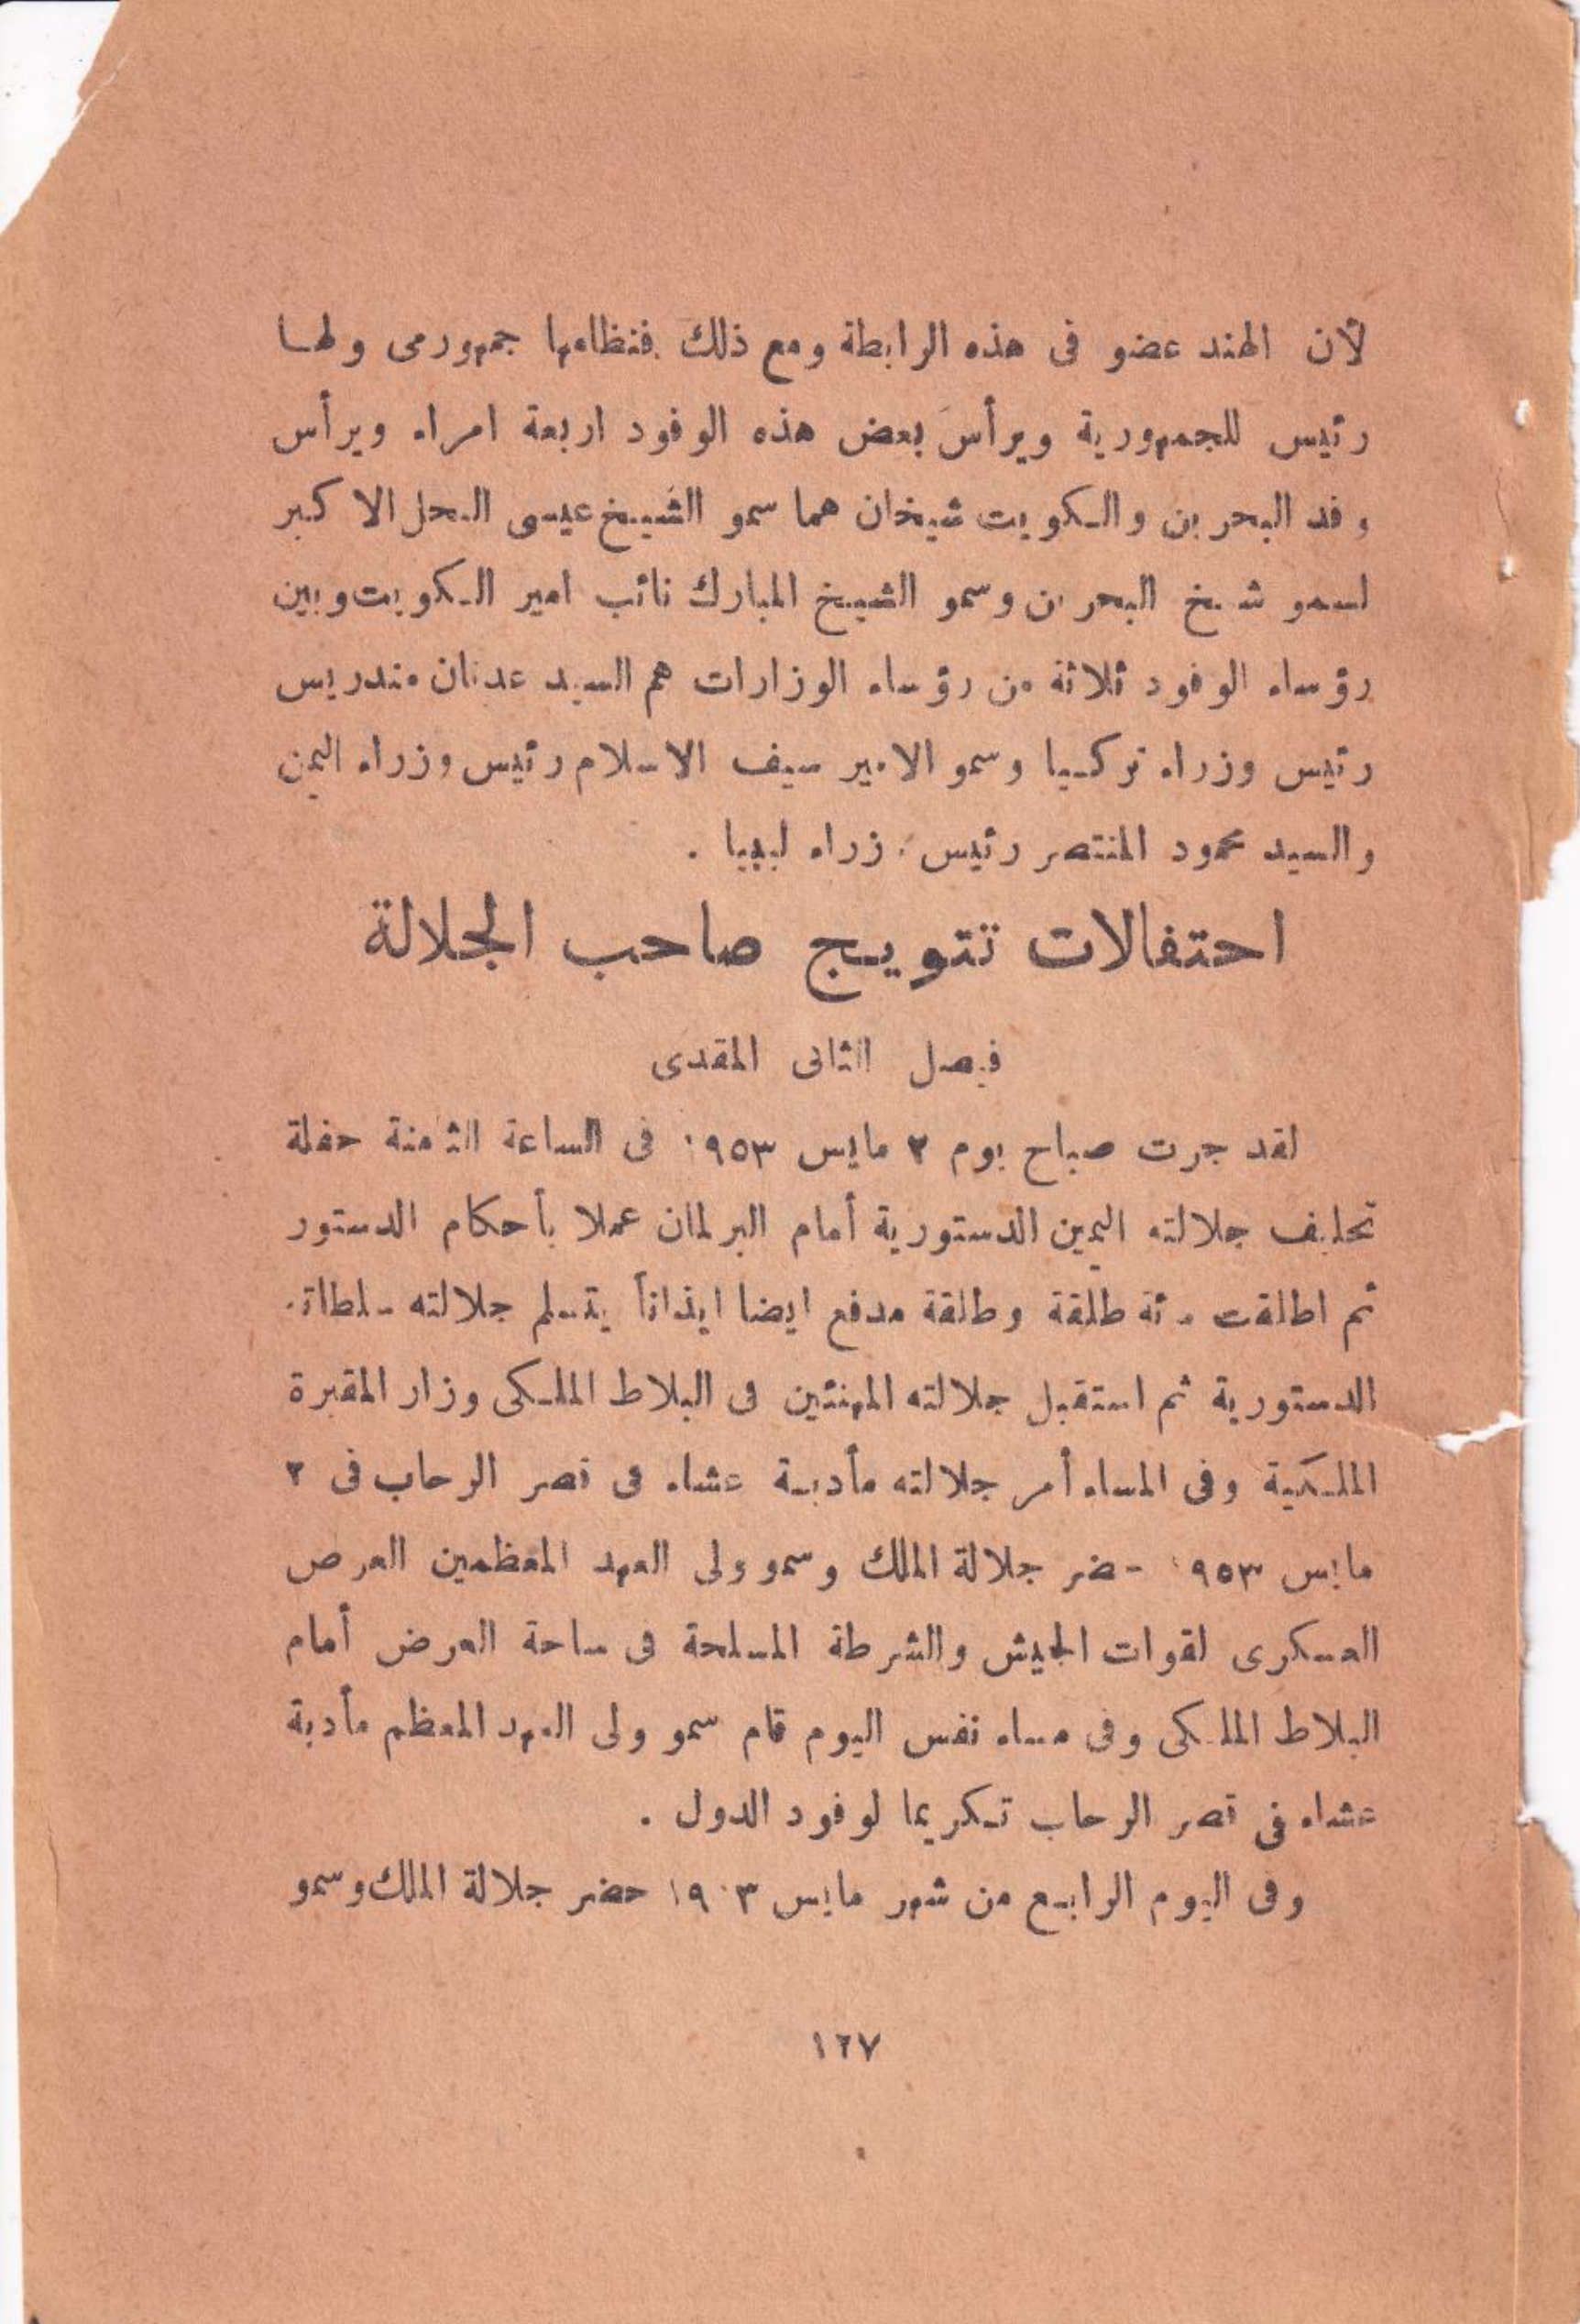 لأن الهند عضو فى هذه الرابطة ومع ذلك فنظامها جمهورمى ولها
رئيس للجمهورية ويرأس بعض هذه الوفود اربعة امراء ويرأس
وفد البحرين والكويت شيخان هما سمو الشيخ عيسى النجل الاكبر
لسمو شيخ البحرين وسمو الشيخ المبارك نائب امير الكويت وبين
رؤساء الوفود ثلاثة من رؤساء الوزارات هم السيد عدنان مندريس
رئيس وزراء تركيا وسمو الامير سيف الاسلام رئيس وزراء اليمن
والسيد محمود المنتصر رئيس وزراء ليبيا .
احتفالات تتويج صاحب الجلالة
فيصل الثانى المقدى
لقد جرت صباح يوم ٢ مايس ١٩٥٣ فى الساعة الثامنة حفلة
تحليف جلالته اليمين الدستورية أمام البرلمان عملا بأحكام الدستور
ثم اطلقت مئة طلقة وطلقة مدفع ايضا ايذاناً بتسلم جلالته سلطاته
الدستورية ثم استقبل جلالته المهنئين فى البلاط الملكى وزار المقبرة
الملكية وفى المساء أمر جلالته مأدبة عشاء فى قصر الرحاب فى ٣
مايس ١٩٥٣ حضر جلالة الملك وسمو ولى العهد المعظمين العرض
العسكرى لقوات الجيش والشرطة المسلحة فى ساحة العرض أمام
البلاط الملكى وفى مساء نفس اليوم قام سمو ولى العهد المعظم مأدبة
عشاء فى قصر الرحاب تكريما لوفود الدول .
وفى اليوم الرابع من شهر مايس ١٩٥٣ حضر جلالة الملك وسمو
١٢٧